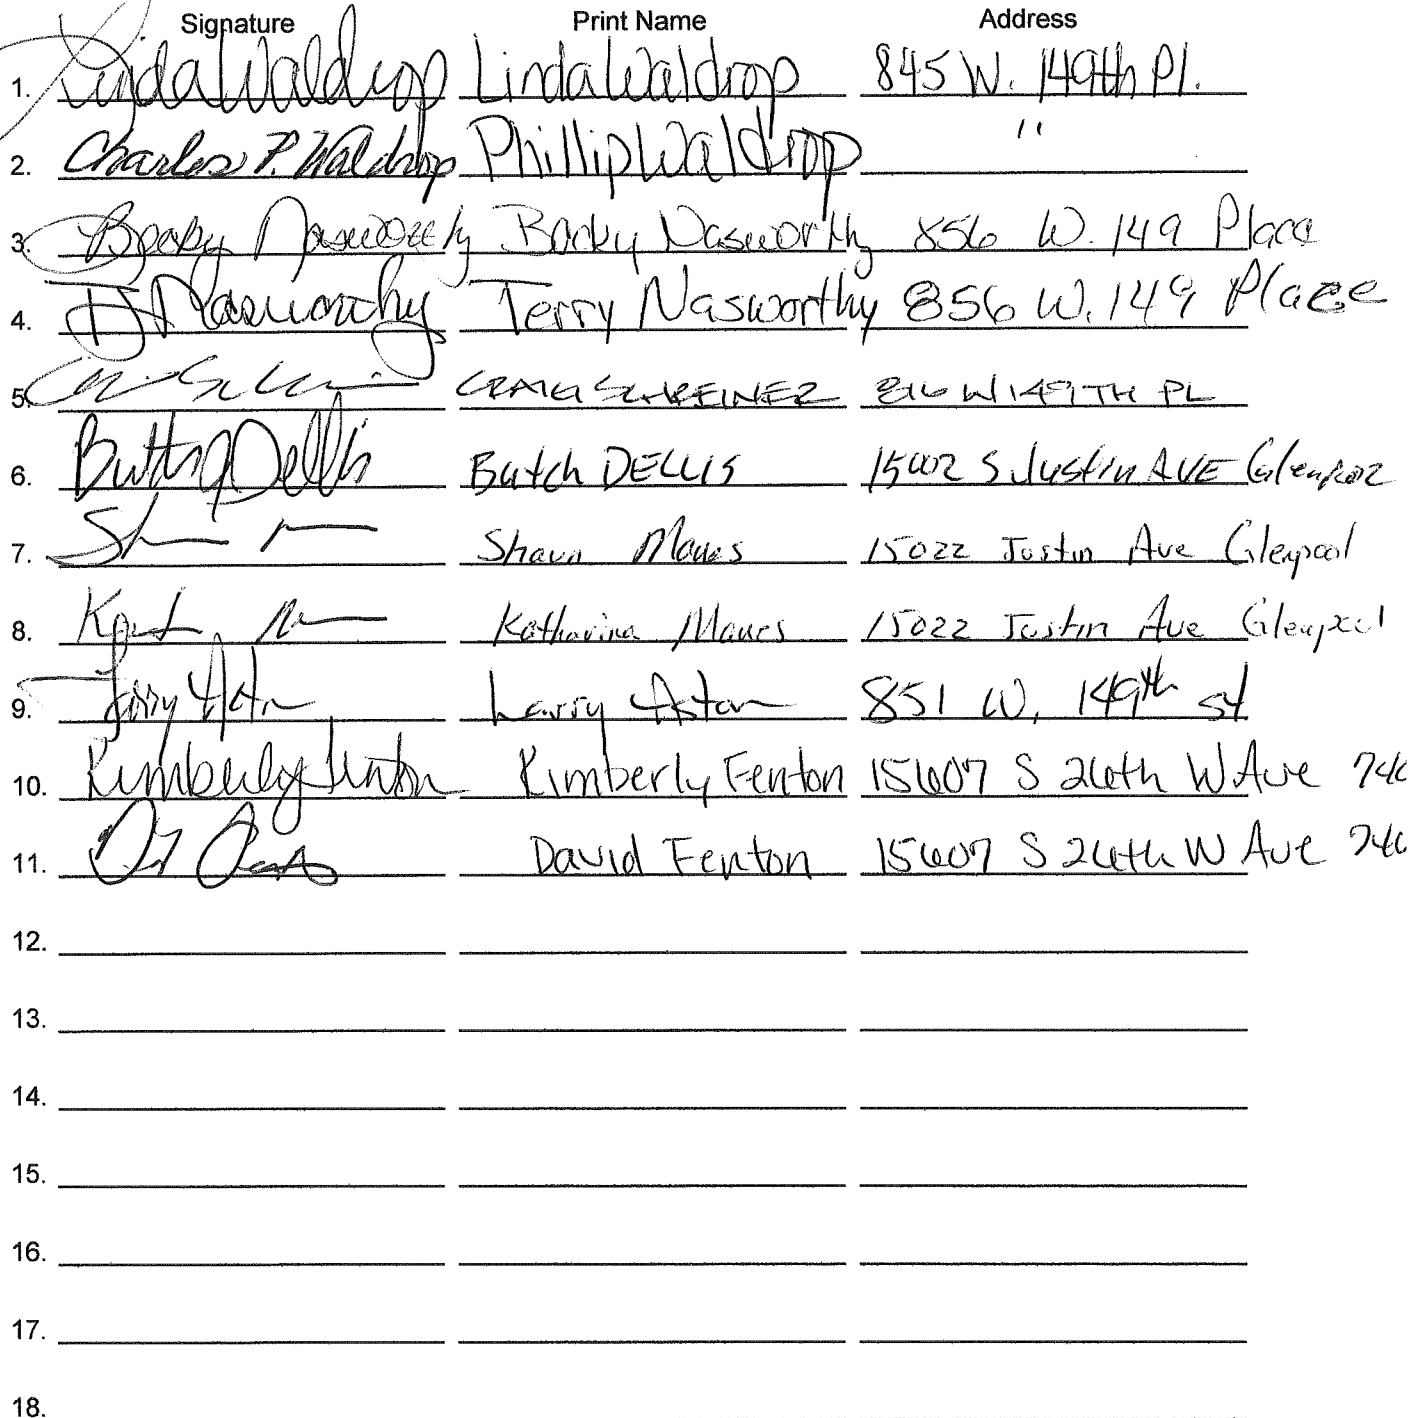 Signature Print Name Address
1. Linda Waldrop Linda Waldrop 845 W. 149th Pl.
2. Charles P. Waldrop Phillip Waldrop "
3. Becky Nasworthy Becky Nasworthy 856 W. 149 Place
4. T Nasworthy Terry Nasworthy 856 W. 149 Place
5. CRAIG SCHREINER 816 W 149TH PL
6. Butch Dellis Butch DELLIS 15002 S Justin AVE Glenpool
7. Shaun Maues 15022 Justin Ave Glenpool
8. Katharina Maues 15022 Justin Ave Glenpool
9. Larry Aston Larry Aston 851 W. 149th st
10. Kimberly Fenton Kimberly Fenton 15607 S 26th W Ave 740
11. David Fenton 15607 S 26th W Ave 740
12.
13.
14.
15.
16.
17.
18.